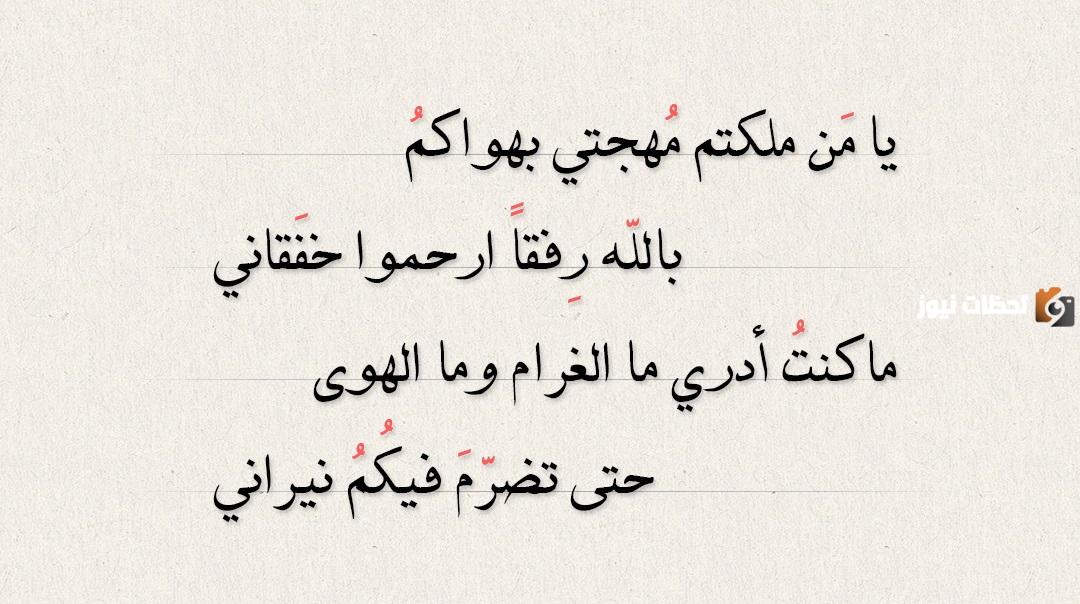 يا مَن ملكتم مُهجتي بهواكمُ
باللّه رِفقاً ارحموا خفَقاني
لحظات نيوز
ماكنتُ أدري ما الغرام وما الهوى
حتى تضرّمَ فيكُمُ نيراني